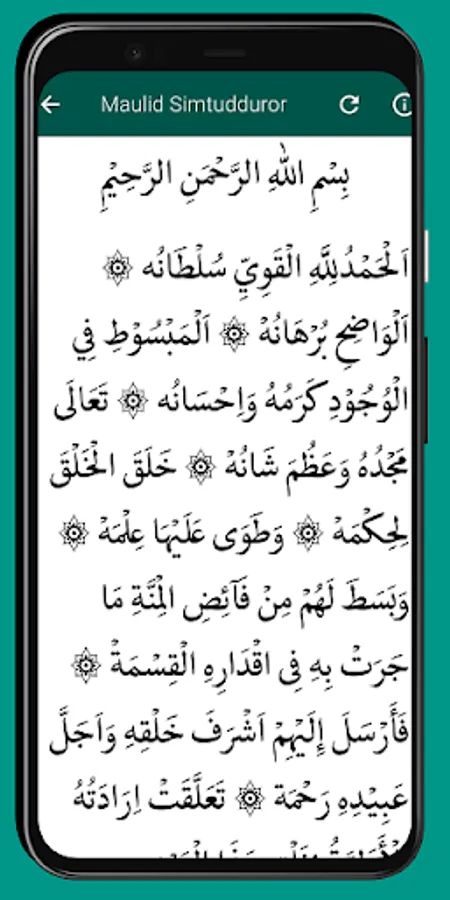 Maulid Simtudduror
بِسْمِ اللهِ الرَّحْمَنِ الرَّحِيْمِ
اَلْحَمْدُلِلَّهِ الْقَوِيِّ سُلْطَانُه ۞
اَلْوَاضِحِ بُرْهَانُهْ ۞ اَلْمَبْسُوْطِ فِي
الْوُجُوْدِ كَرَمُهُ وَاِحْسَانُه ۞ تَعَالَى
مَجْدُهُ وَعَظُمَ شَانُهْ ۞ خَلَقَ الْخَلْقَ
لِحِكْمَهْ ۞ وَطَوَى عَلَيْهَا عِلْمَهْ ۞
وَبَسَطَ لَهُمْ مِنْ فَآئِضِ الْمِنَّةِ مَا
جَرَتْ بِهِ فِى اَقْدَارِهِ الْقِسْمَةْ ۞
فَأَرْسَلَ إِلَيْهِمْ اَشْرَفَ خَلْقِهِ وَاَجَلَّ
عَبِيْدِهِ رَحْمَة ۞ تَعَلَّقَتْ اِرَادَتُهُ